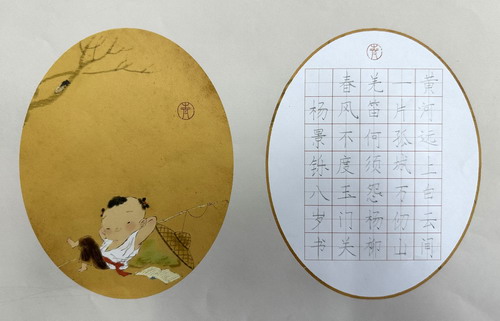 黄河远上白云间
一片孤城万仞山
羌笛何须怨杨柳
春风不度玉门关
杨景铄八岁书